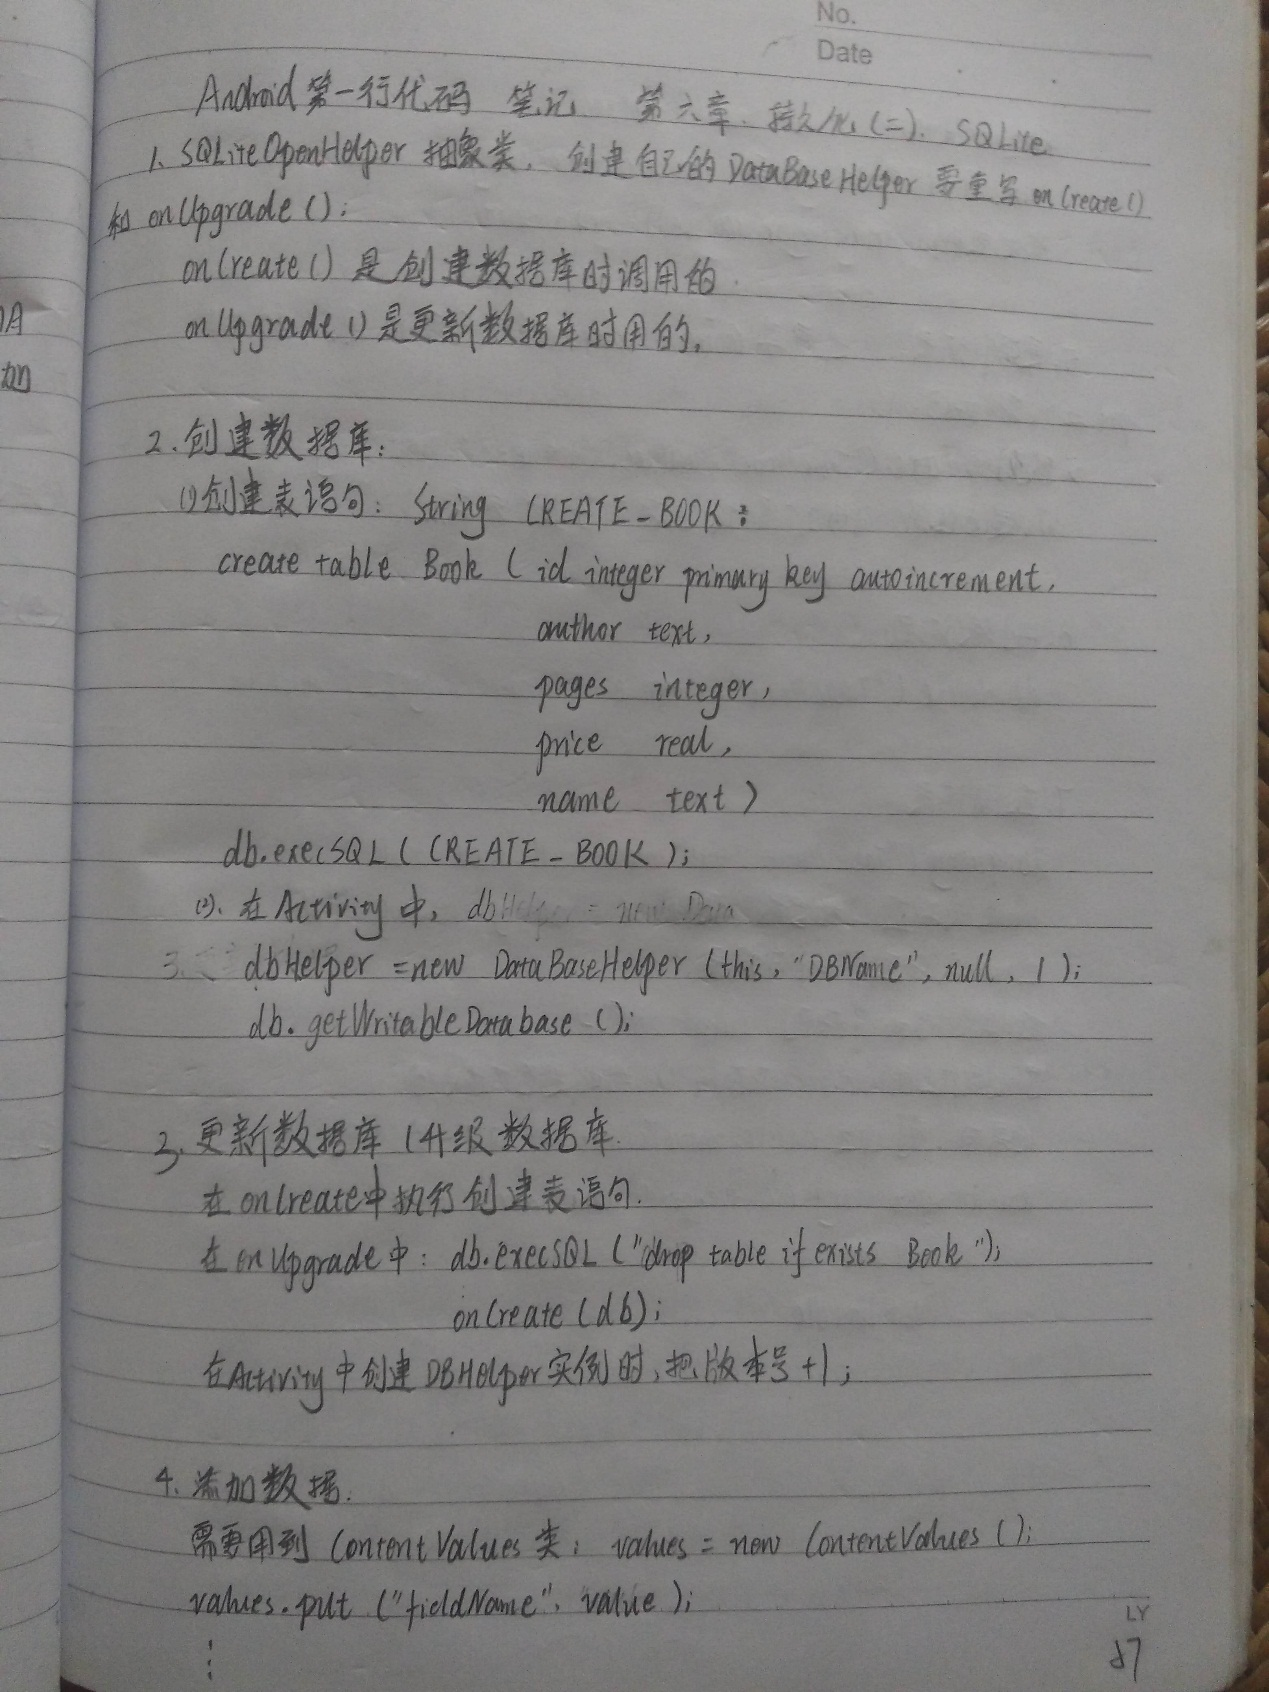 No.
Date
Android 第一行代码 笔记 第六章. 持久化(二). SQLite
1. SQLiteOpenHelper 抽象类. 创建自己的 DataBaseHelper 要重写 onCreate()
和 onUpgrade();
onCreate() 是创建数据库时调用的
onUpgrade() 是更新数据库时用的.
2. 创建数据库:
(1)创建表语句: String CREATE_BOOK:
create table Book ( id integer primary key autoincrement,
author text,
pages integer,
price real,
name text )
db.execSQL ( CREATE_BOOK );
(2). 在 Activity 中, dbHelper = new Data
3. dbHelper = new DataBaseHelper (this, "DBName", null, 1);
db. getWritableDatabase ();
3. 更新数据库 / 升级数据库.
在 onCreate中执行创建表语句.
在 onUpgrade中: db.execSQL ("drop table if exists Book");
onCreate (db);
在Activity中创建 DBHelper实例时, 把版本号+1;
4. 添加数据.
需要用到 ContentValues 类; values = new ContentValues ();
values.put ("fieldName", value );
⋮
LY
87